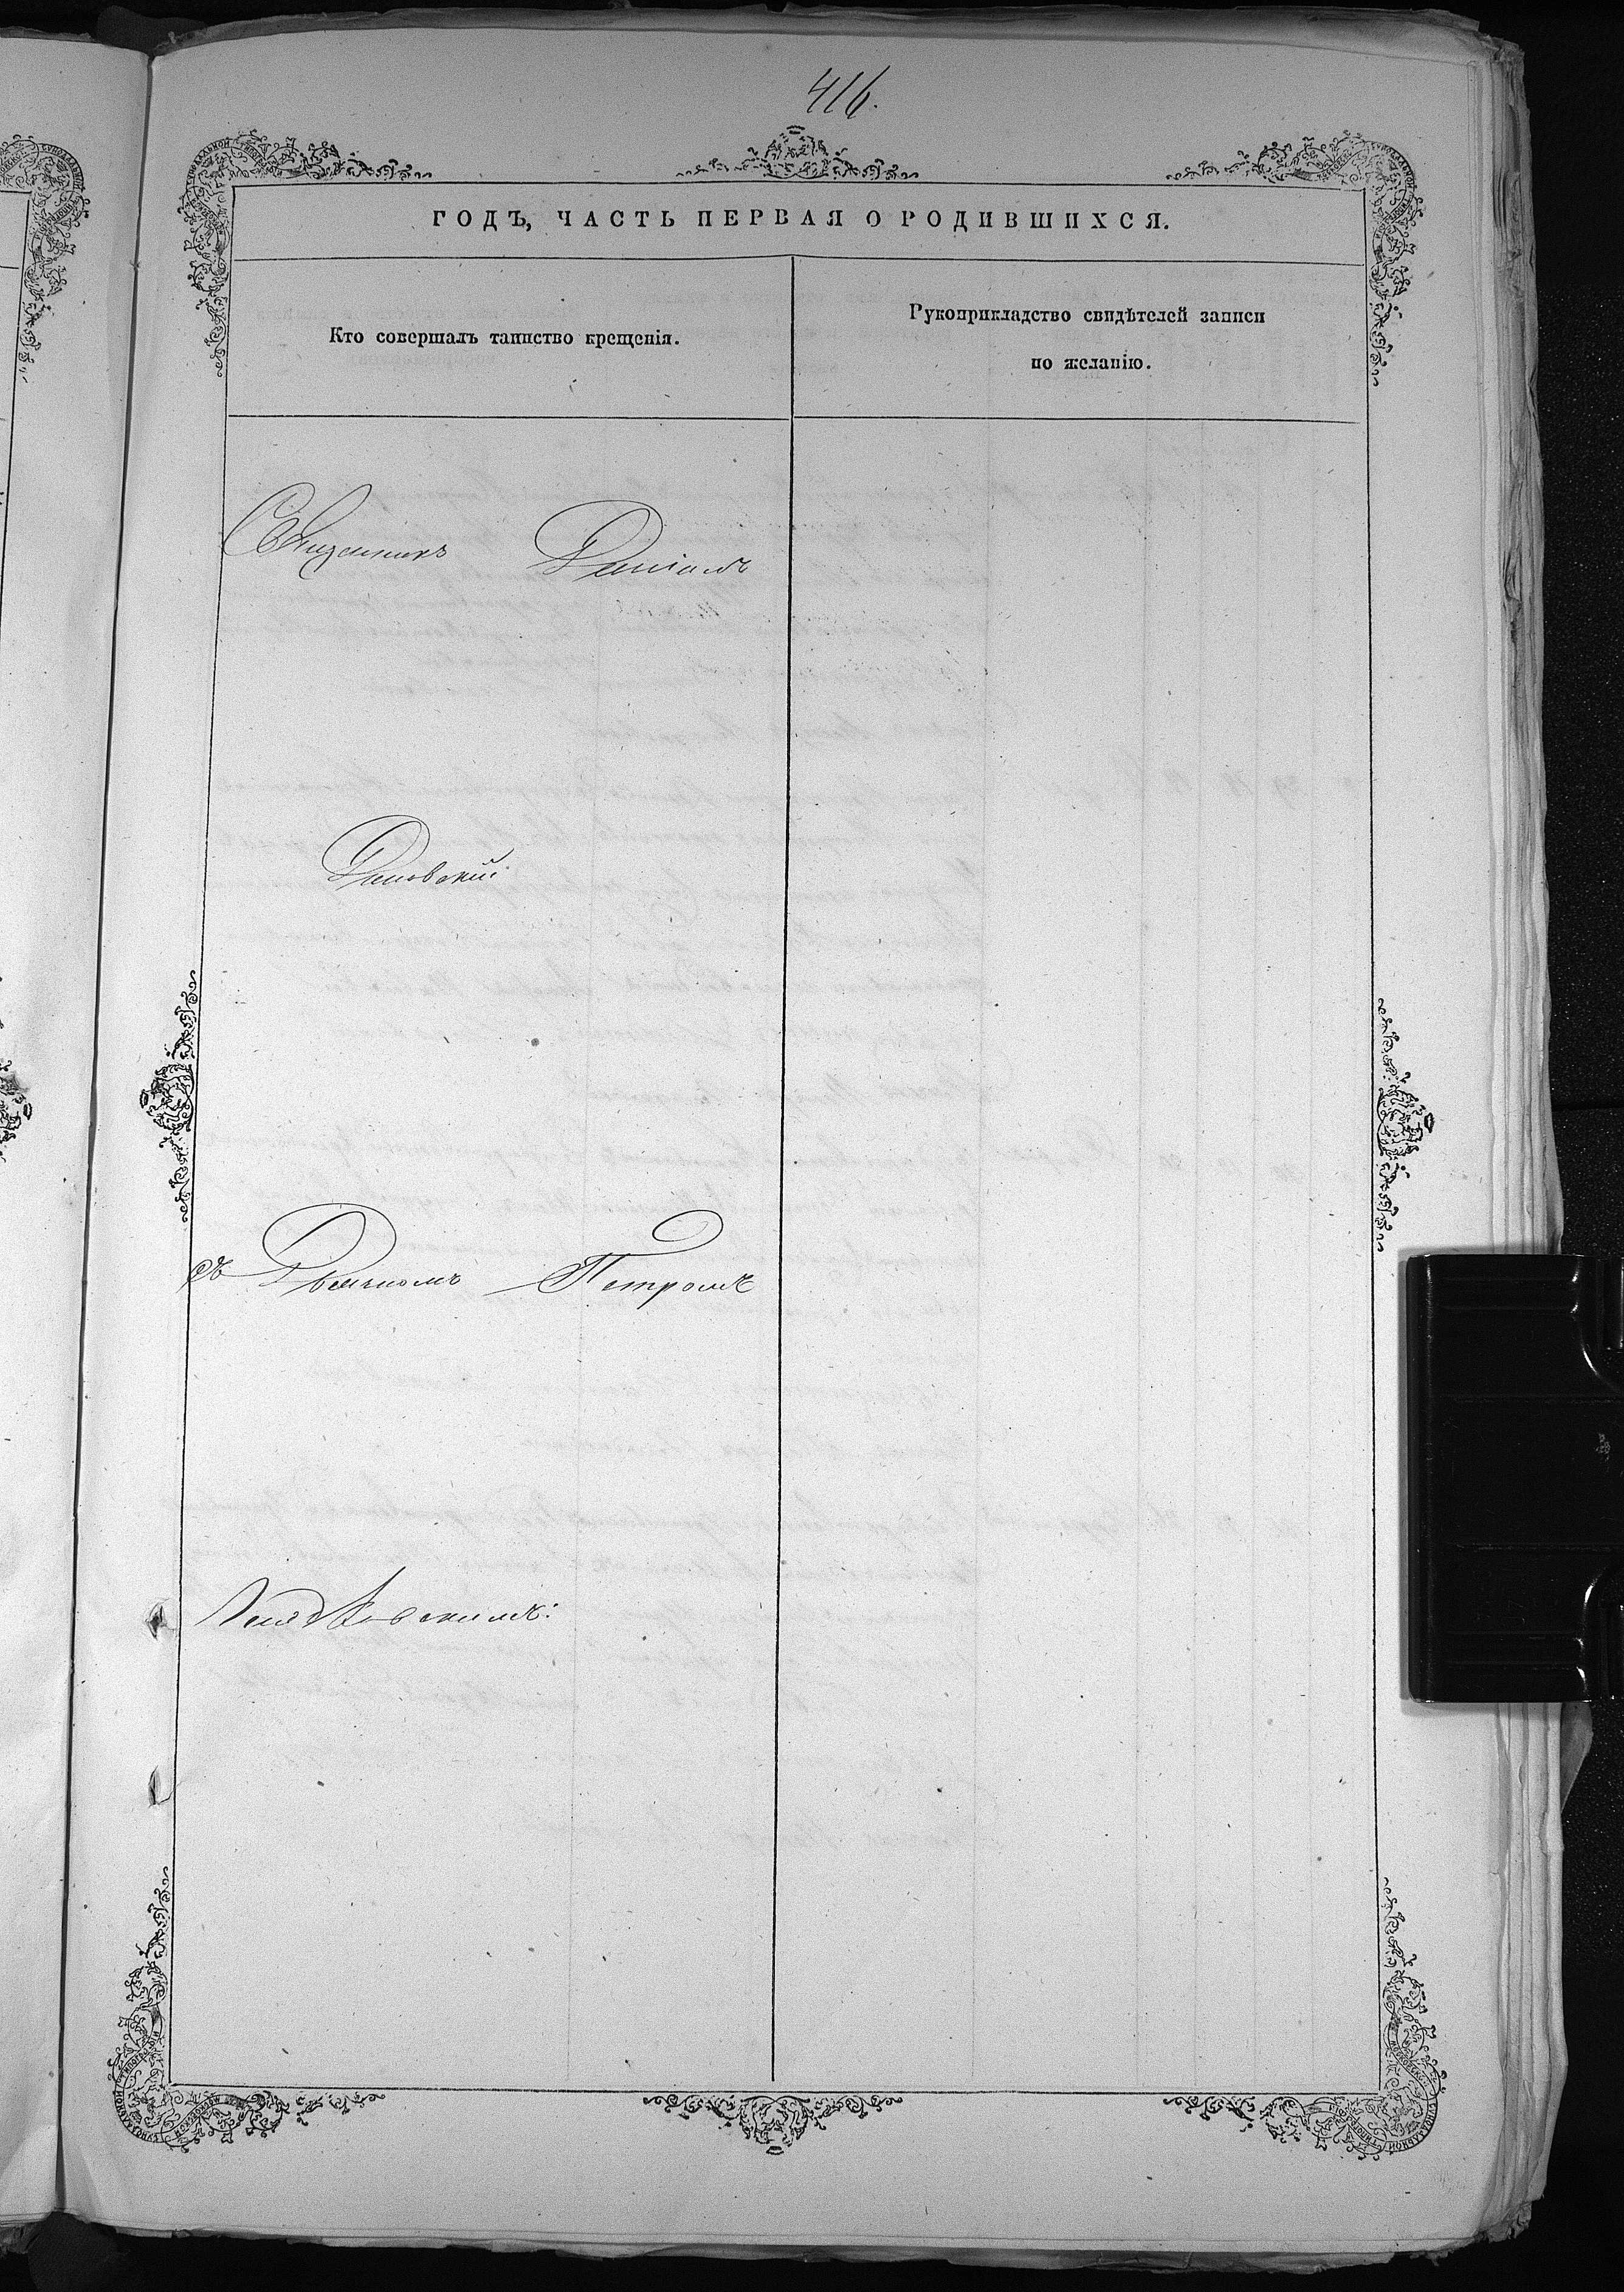 416.
ГОДЪ, ЧАСТЬ ПЕРВАЯ О РОДИВШИХСЯ.
Кто совершалъ таинство крещенія.
Рукоприкладство свидѣтелей записи
по желанію.
Священникъ Даніилъ
съ Дьячкомъ Петромъ